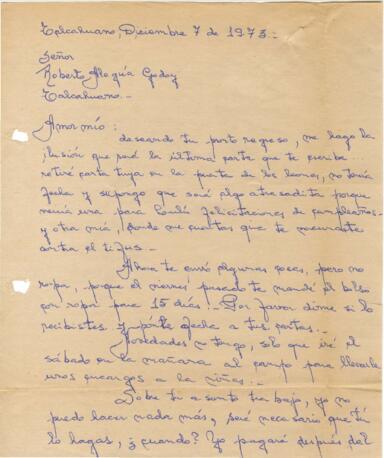 Talcahuano, Diciembre 7 de 1973.-
Señor
Roberto Alegría Godoy
Talcahuano.-
Amor mío:
deseando tu pronto regreso, me hago la
ilusión que será la última carta que te escribo..
retiré carta tuya en la puerta de los leones, no tenía
fecha y supongo que será algo atrasadita porque
venía una para felicitaciones de cumpleaños-
y otra mía, donde me cuentas que te vacunaste
contra el tifus.-
Ahora te envío algunas cosas, pero no
ropa, porque el viernes pasado te mandé el bolso
con ropa para 15 días.- Por favor dime si lo
recibistes y pónle fecha a tus cartas.-
Novedades no tengo, sólo que iré el
sábado en la mañana al campo para llevarle
unos encargos a la niña.-
Sobre tu asunto trabajo, yo no
puedo hacer nada más, será necesario que tú
lo hagas, ¿cuando? Yo pagaré después del